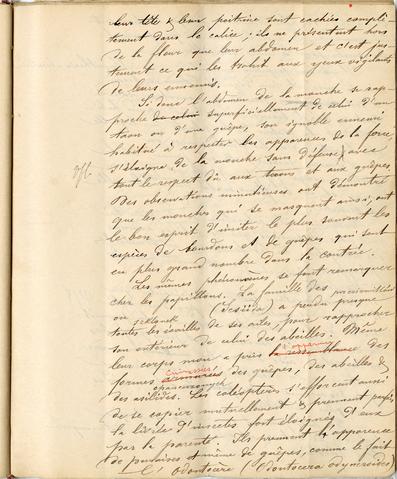 leur tête & leur poitrine sont cachées complè-
tement dans le calice; ils ne présentent hors
de la fleur que leur abdomen et c'est jus-
tement ce qui les trahit aux yeux vigilants
de leurs ennemis.
Si donc l'abdomen de la mouche se rap-
proche de celui superficiellement de celui d'un
taon ou d'une guêpe, son ignoble ennemi
habitué à respecter les apparences de la force
s'éloigne de la mouche sans défense, avec
tout le respect dû aux taons et aux guêpes
Des observations minutieuses ont démontré
que les mouches qui se masquent ainsi, ont
le bon esprit d'imiter le plus souvent les
espèces de bourdons et de guêpes qui sont
en plus grand nombre dans la contrée.
Les mêmes phénomènes se font remarquer
chez les papillons. La famille des
ou (Sesiidae) a perdu presque
toutes les écailles de ses ailes, pour rapprocher
son extérieur de celui des abeilles. Même
leur corps mou a pris la ressemblance des
formes des guêpes, des abeilles &
des asilides. Les coléoptères s'efforcent aussi
de se copier mutuellement & prennent parfois
la livrée d'insectes fort éloignés d'eux
par la parenté. Ils prennent l'apparence
de punaises et même de guêpes, comme le fait
L'Odontocère (Odontocera odyneroides)